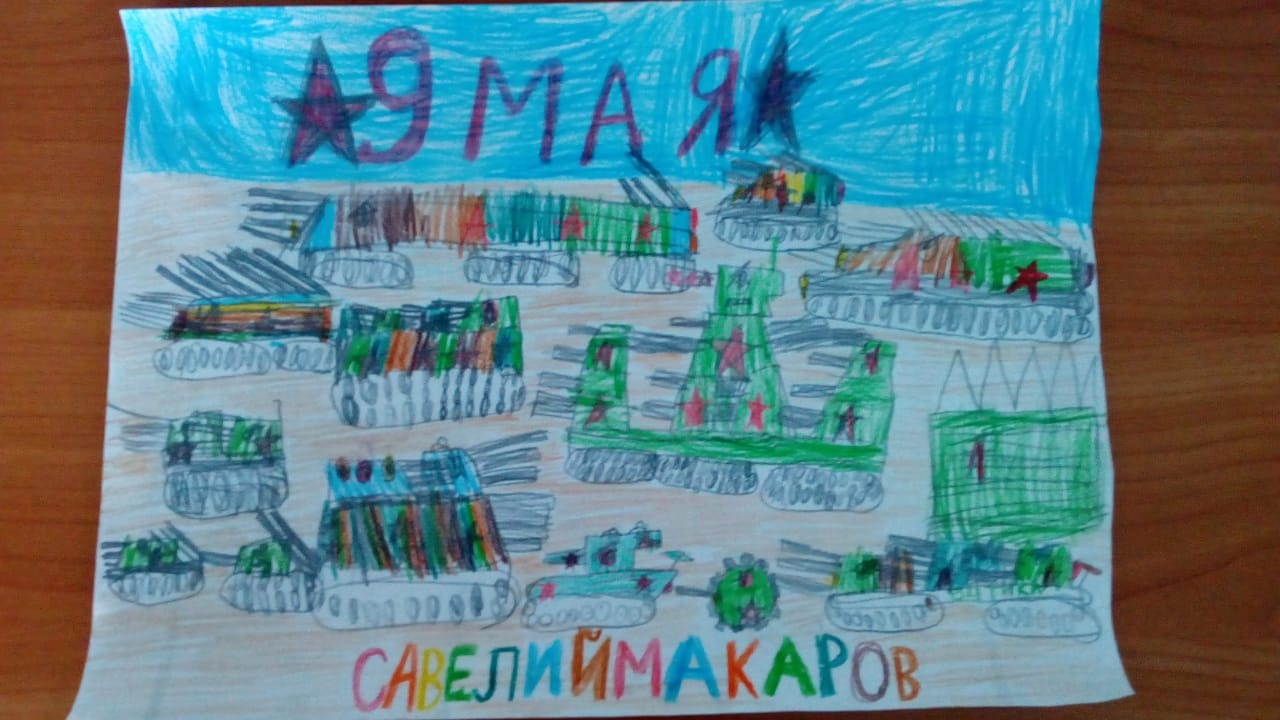 9 МАЯ
САВЕЛИЙМАКАРОВ